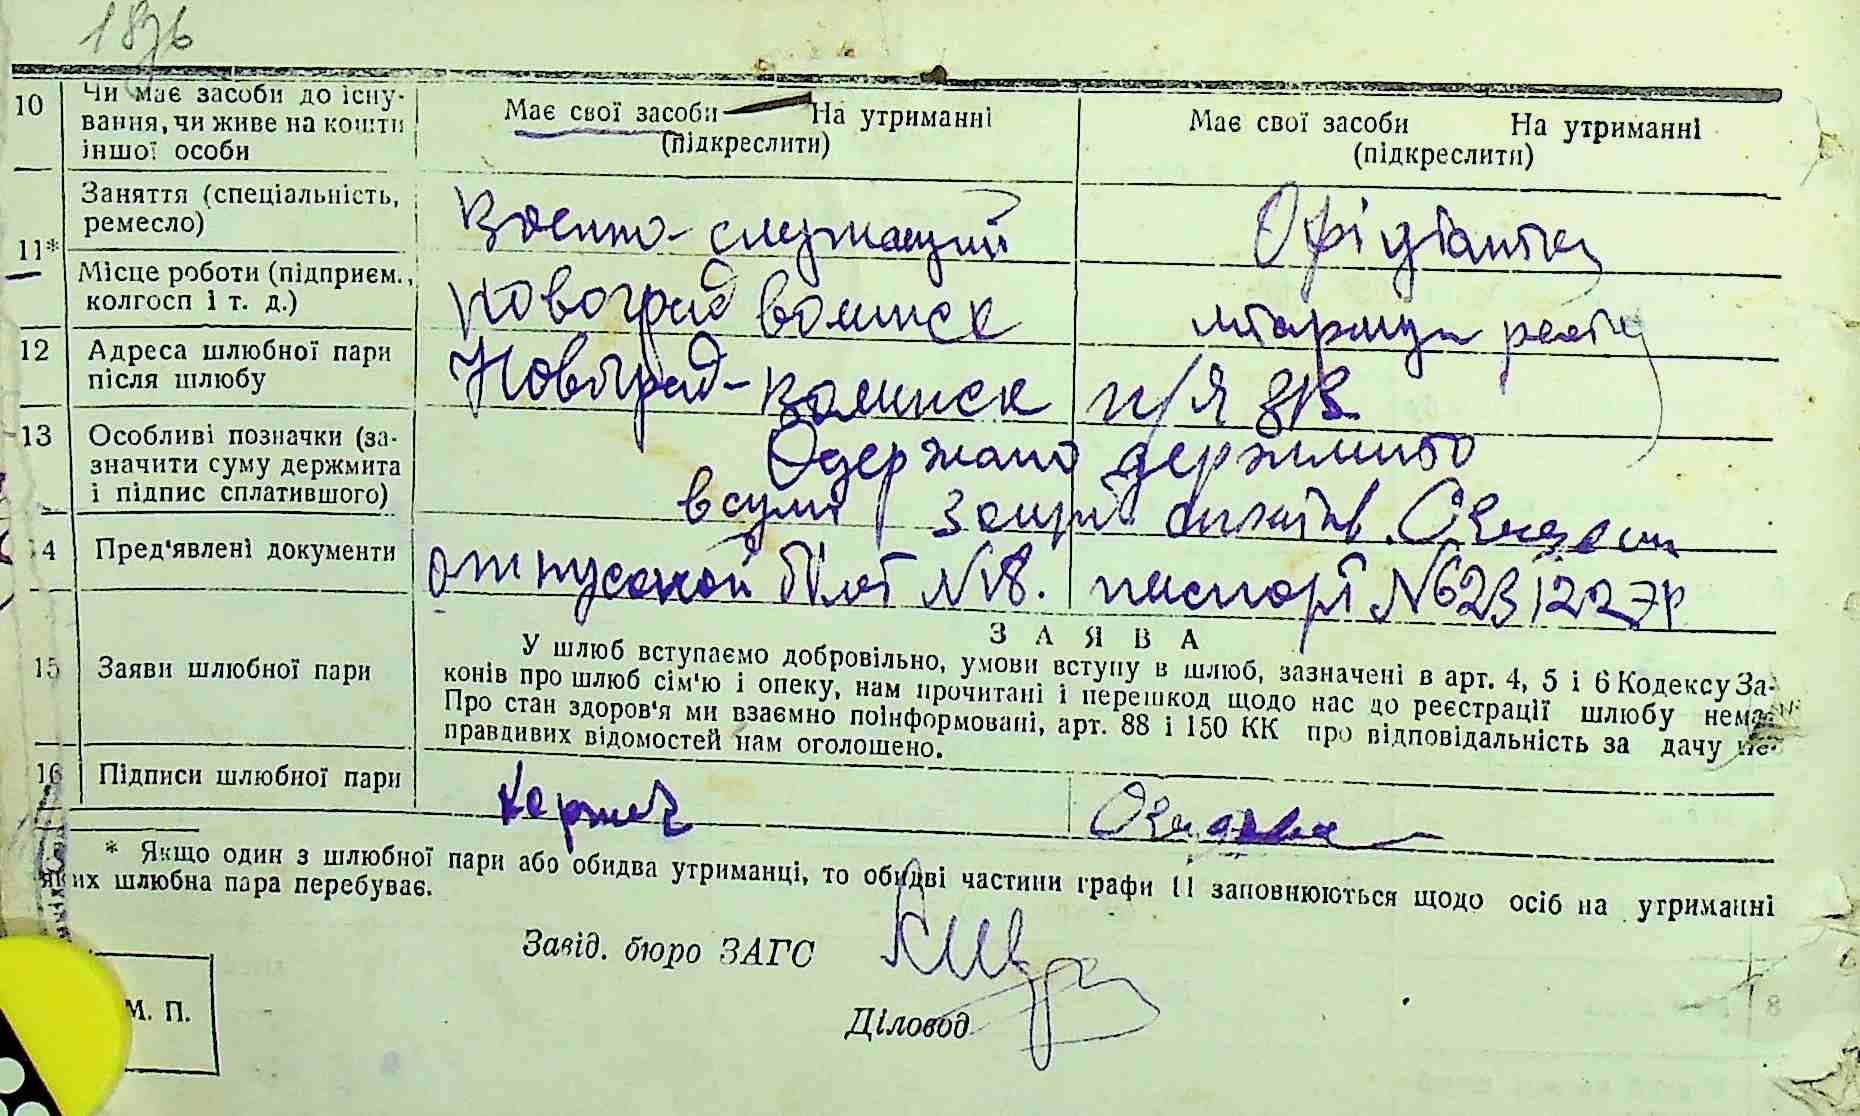 10 Чи має засоби до існу-
вання, чи живе на кошти
іншої особи
Має свої засоби На утриманні
(підкреслити)
Має свої засоби На утриманні
(підкреслити)
11* Заняття (спеціальність,
ремесло)
Военно-служащий
Офіціантка
Місце роботи (підприєм.,
колгосп і т. д.)
Новоград Волинск
12 Адреса шлюбної пари
після шлюбу
Новоград-Волинск п/я
13 Особливі позначки (за-
значити суму держмита
і підпис сплатившого)
Одержано держмито
в сумі
14 Пред'явлені документи
отпускной білет №18. паспорт №
15 Заяви шлюбної пари
ЗАЯВА
У шлюб вступаємо добровільно, умови вступу в шлюб, зазначені в арт. 4, 5 і 6 Кодексу За-
конів про шлюб сім'ю і опеку, нам прочитані і перешкод щодо нас до реєстрації шлюбу нема.
Про стан здоров'я ми взаємно поінформовані, арт. 88 і 150 КК про відповідальність за дачу не-
правдивих відомостей нам оголошено.
16 Підписи шлюбної пари
* Якщо один з шлюбної пари або обидва утриманці, то обидві частини графи 11 заповнюються щодо осіб на утриманні
яких шлюбна пара перебуває.
Завід. бюро ЗАГС
М. П.
Діловод